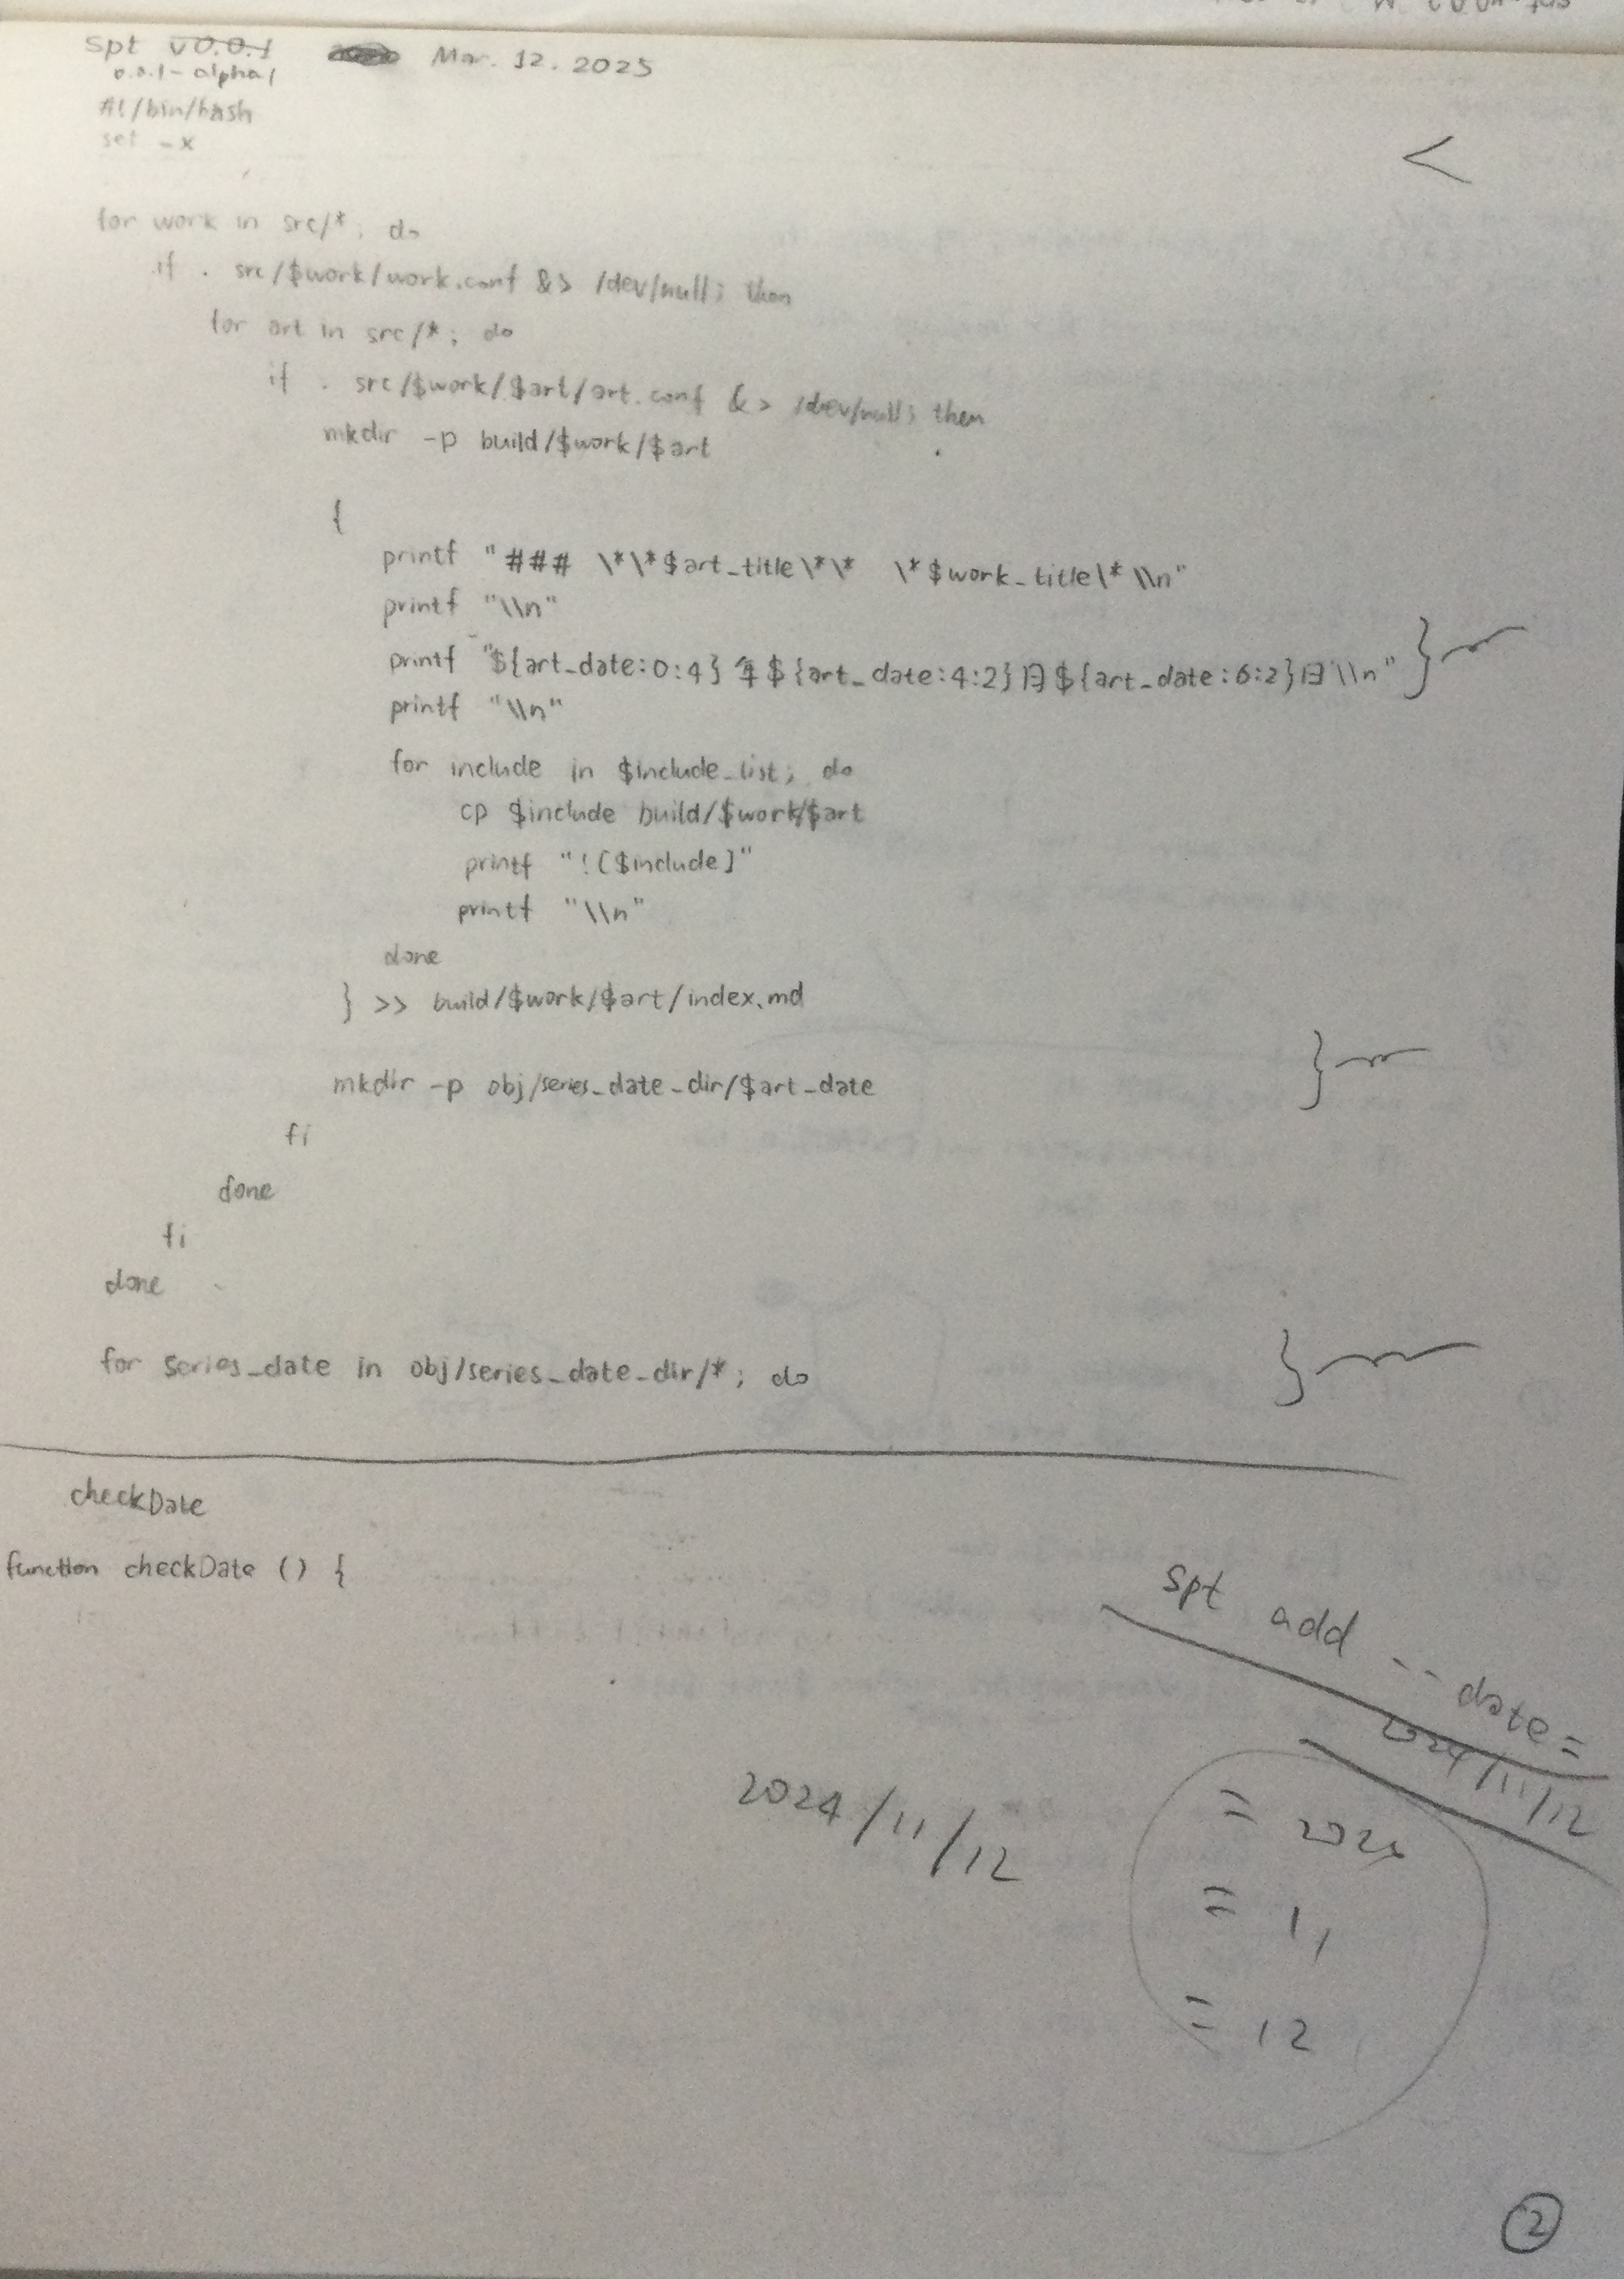 spt v0.0.1 Mar. 12. 2025
0.0.1-alpha1
#!/bin/bash
set -x
for work in src/*; do
if . src/$work/work.conf &> /dev/null; then
for art in src/*; do
if . src/$work/$art/art.conf &> /dev/null; then
mkdir -p build/$work/$art
{
printf "### \*\*$art_title\*\* \*$work_title\*\\n"
printf "\\n"
printf "${art_date:0:4}年${art_date:4:2}月${art_date:6:2}日\\n" }
printf "\\n"
for include in $include_list; do
cp $include build/$work/$art
printf "![$include]"
printf "\\n"
done
} >> build/$work/$art/index.md
mkdir -p obj/series_date_dir/$art_date }
fi
done
fi
done
for series_date in obj/series_date_dir/*; do }
checkDate
function checkDate () {
spt add --date=
2024/11/12
2024/11/12
= 2024
= 11
= 12
2